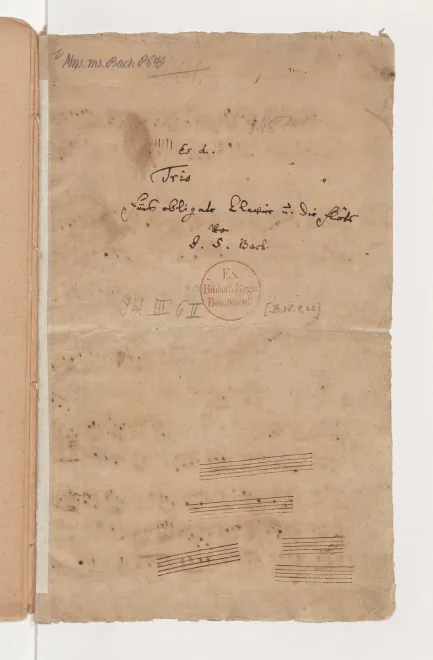 Mus. ms. Bach P 649
Es d.
Trio
Fürs obligate Clavier u. die Flöte
von
J. S. Bach.
Ex
Biblioth. Regia
Berolinensi.
III 6 II